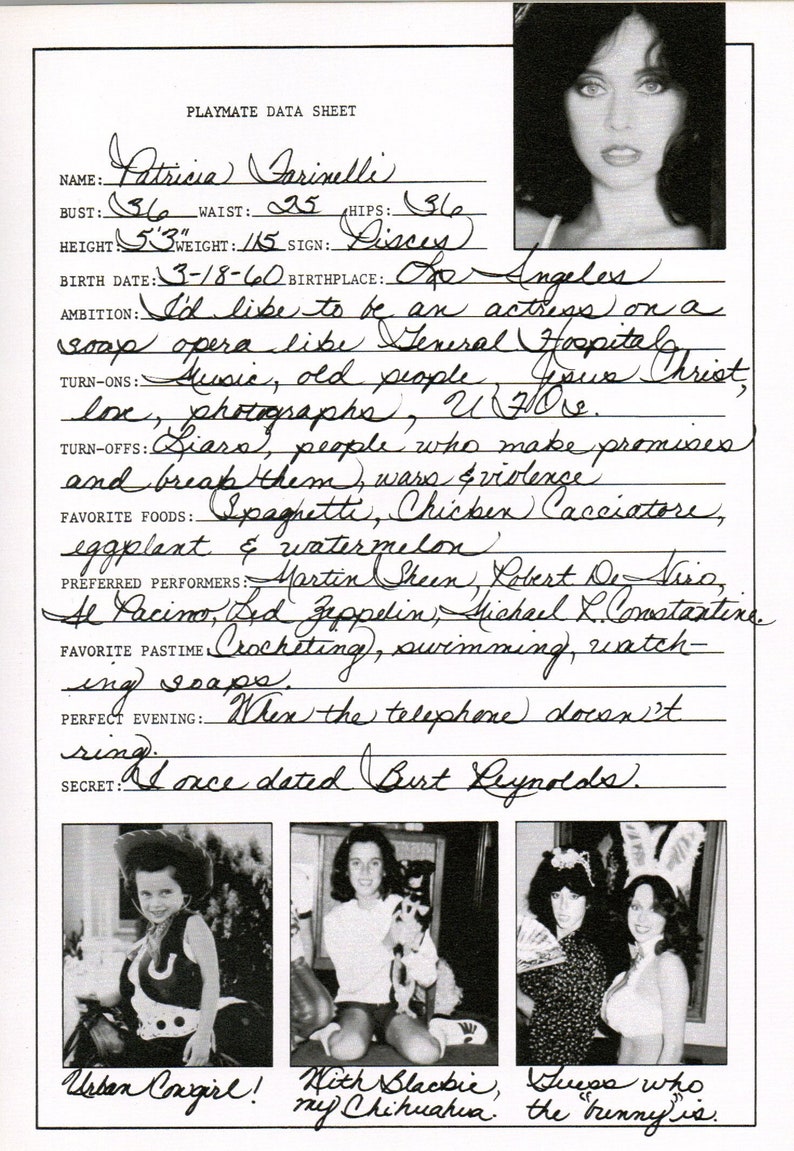 PLAYMATE DATA SHEET
NAME: Patricia Farinelli
BUST: 36 WAIST: 25 HIPS: 36
HEIGHT: 5'3" WEIGHT: 115 SIGN: Pisces
BIRTH DATE: 3-18-60 BIRTHPLACE: Los Angeles
AMBITION: I'd like to be an actress on a
soap opera like General Hospital.
TURN-ONS: Music, old people, Jesus Christ,
love, photographs, UFOs.
TURN-OFFS: Liars, people who make promises
and break them, wars & violence
FAVORITE FOODS: Spaghetti, Chicken Cacciatore,
eggplant & watermelon
PREFERRED PERFORMERS: Martin Sheen, Robert De Niro,
Al Pacino, Led Zeppelin, Michael L. Constantine.
FAVORITE PASTIME: Crocheting, swimming, watch-
ing soaps.
PERFECT EVENING: When the telephone doesn't
ring.
SECRET: I once dated Burt Reynolds.
Urban Cowgirl!
With Blackie,
my Chihuahua.
Guess who
the "bunny" is.